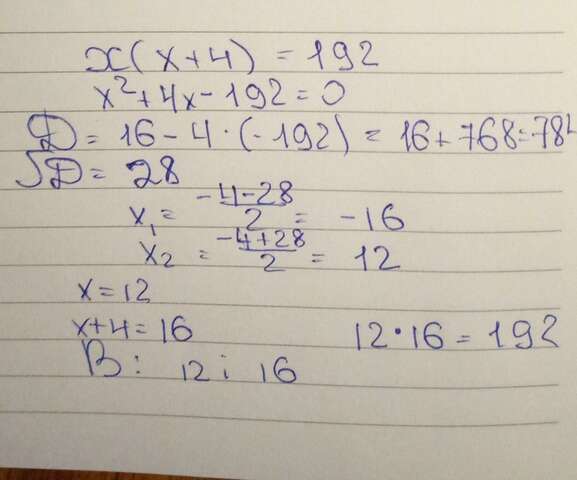 x(x+4) = 192
x²+4x-192=0
D = 16-4·(-192) = 16+768=784
√D = 28
x₁ = (-4-28)/2 = -16
x₂ = (-4+28)/2 = 12
x=12
x+4=16 12·16=192
В: 12 і 16